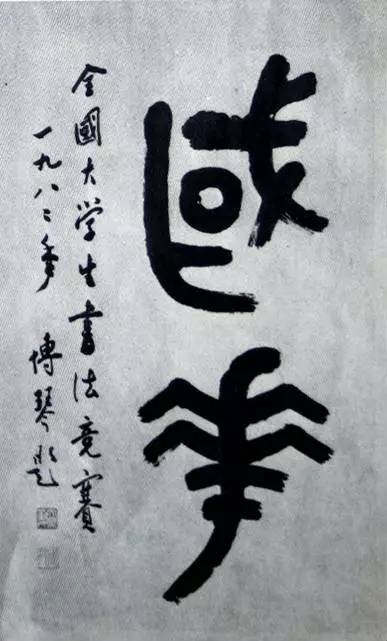 國華
全國大学生書法竞賽
一九八二年 博琴题